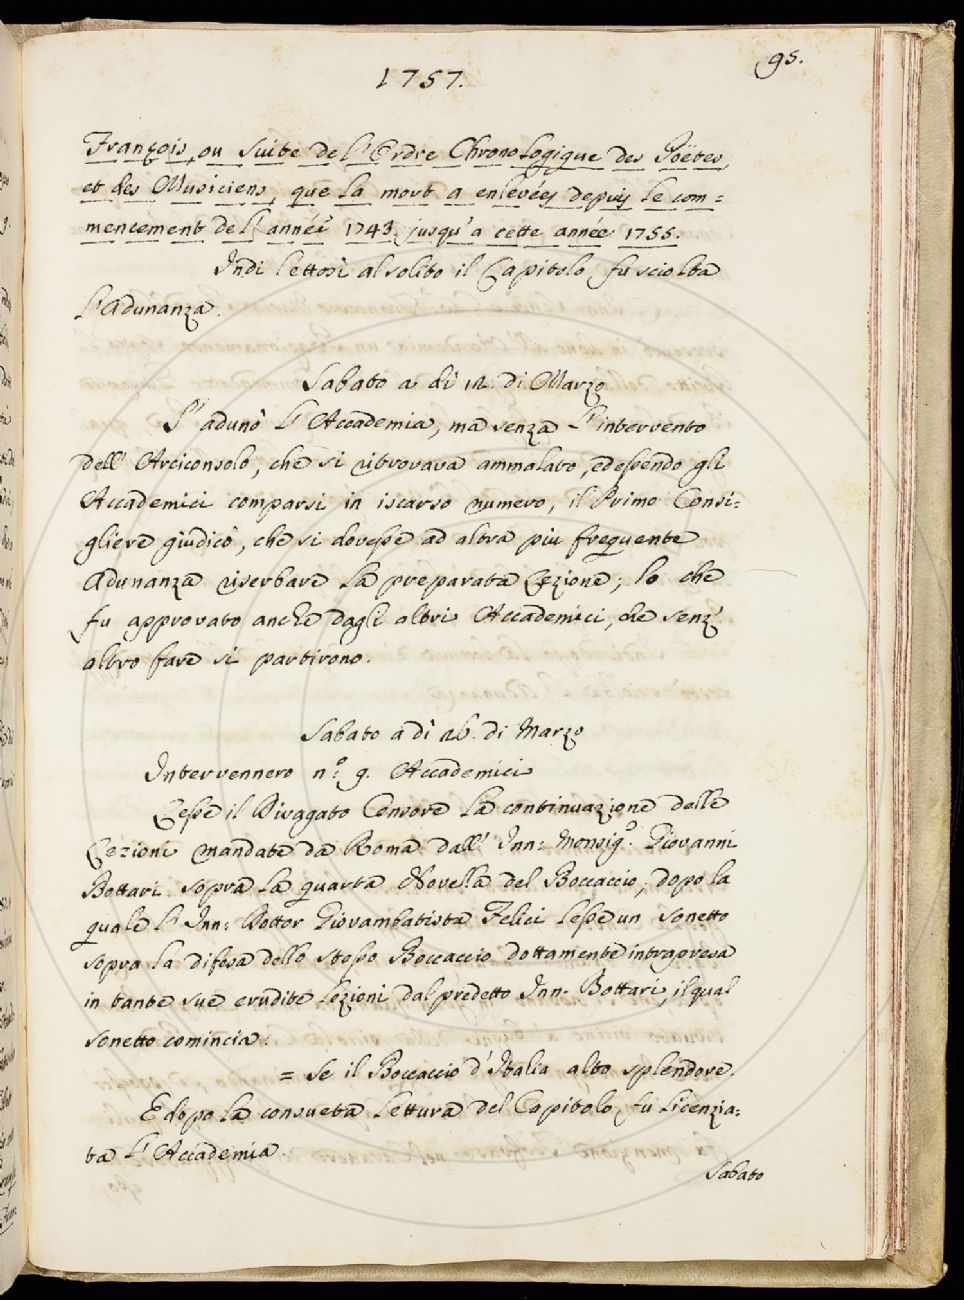 95.
1757.
François, ou suite de l'Ordre Chronologique des Poëtes,
et des Musiciens, que la mort a enlevées depuis le com=
mencement de l'année 1743. jusqu'a cette année 1755.
Indi lettosi al solito il Capitolo, fu sciolta
l'Adunanza.
Sabato a dì 12. di Marzo
S'adunò l'Accademia, ma senza l'intervento
dell'Arciconsolo, che si ritrovava ammalato, ed essendo gli
Accademici comparsi in iscarso numero, il Primo Consi=
gliere giudicò, che si dovesse ad altra più frequente
Adunanza riserbare la preparata Lezione; lo che
fu approvato anche dagli altri Accademici, che senz'
altro fare si partirono.
Sabato a dì 26. di Marzo
Intervennero n.° 9. Accademici
Lesse il Divagato Censore la continuazione delle
Lezioni mandate da Roma dall'Inn: Monsig.° Giovanni
Bottari sopra la quarta Novella del Boccaccio; dopo la
quale l'Inn: Dottor Giovambatista Felici lesse un Sonetto
sopra la difesa dello stesso Boccaccio dottamente intrapresa
in tante sue erudite lezioni dal predetto Inn. Bottari, il qual
sonetto comincia:
= Se il Boccaccio d'Italia alto splendore.
E dopo la consueta lettura del Capitolo, fu licenzia=
ta l'Accademia
Sabato